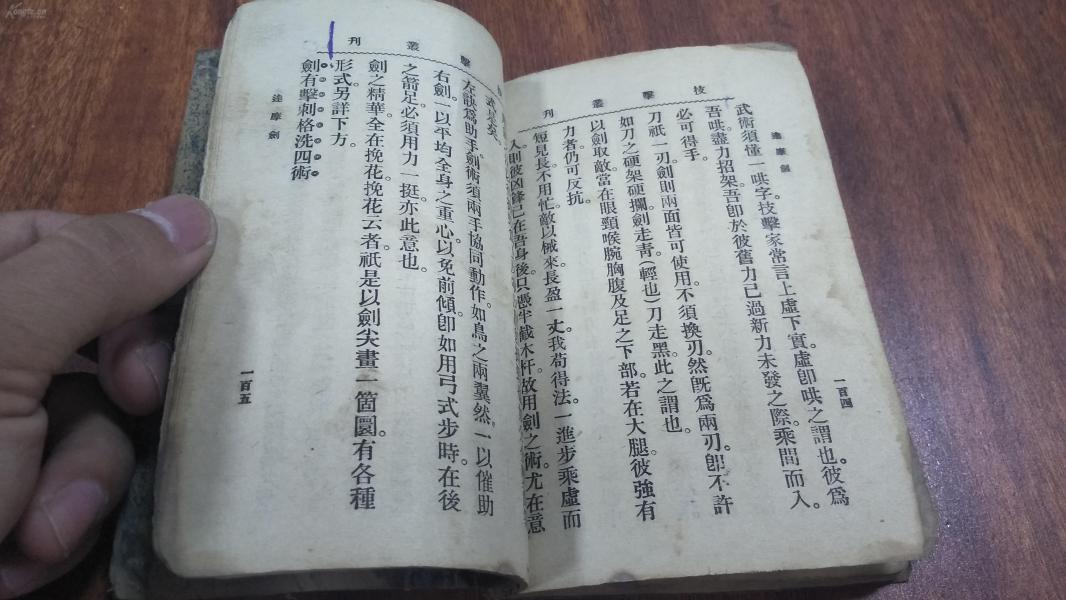 Kongfz.cn
技擊叢刊
達摩劍
一百四
武術須懂一哄字技擊家常言上虛下實虛卽哄之謂也。彼爲
吾哄盡力招架吾卽於彼舊力已過新力未發之際。乘間而入。
必可得手。
刀祇一刃劍則兩面皆可使用。不須換刃。然旣爲兩刃。卽不許
如刀之硬架硬攔劍走青（輕也）刀走黑此之謂也。
以劍取敵當在眼頸喉腕胸腹及足之下部若在大腿彼強有
力者仍可反抗。
短見長不用忙敵以械來長盈一丈。我苟得法。一進步乘虛而
入則彼凶鋒已在吾身後。只憑半截木杆。故用劍之術。尤在意
擊叢刊
達摩劍
一百五
左訣爲助手。劍術須兩手協同動作。如鳥之兩翼然。一以催助
右劍。一以平均全身之重心。以免前傾。卽如用弓式步時。在後
之箭足必須用力一挺。亦此意也。
劍之精華。全在挽花。挽花云者。祇是以劍尖畫一箇圜。有各種
形式。另詳下方。
劍有擊刺格洗四術